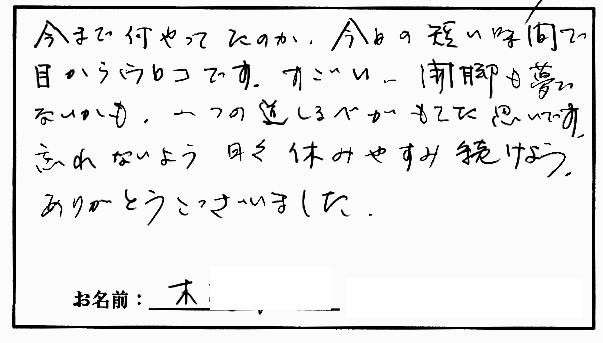 今まで何やってたのか、今日の短い時間で
目からウロコです。すごい、開脚も夢で
ないかも、一つの道しるべがもてた思いです。
忘れないよう日々休みやすみ続けよう。
ありがとうございました。
お名前：木